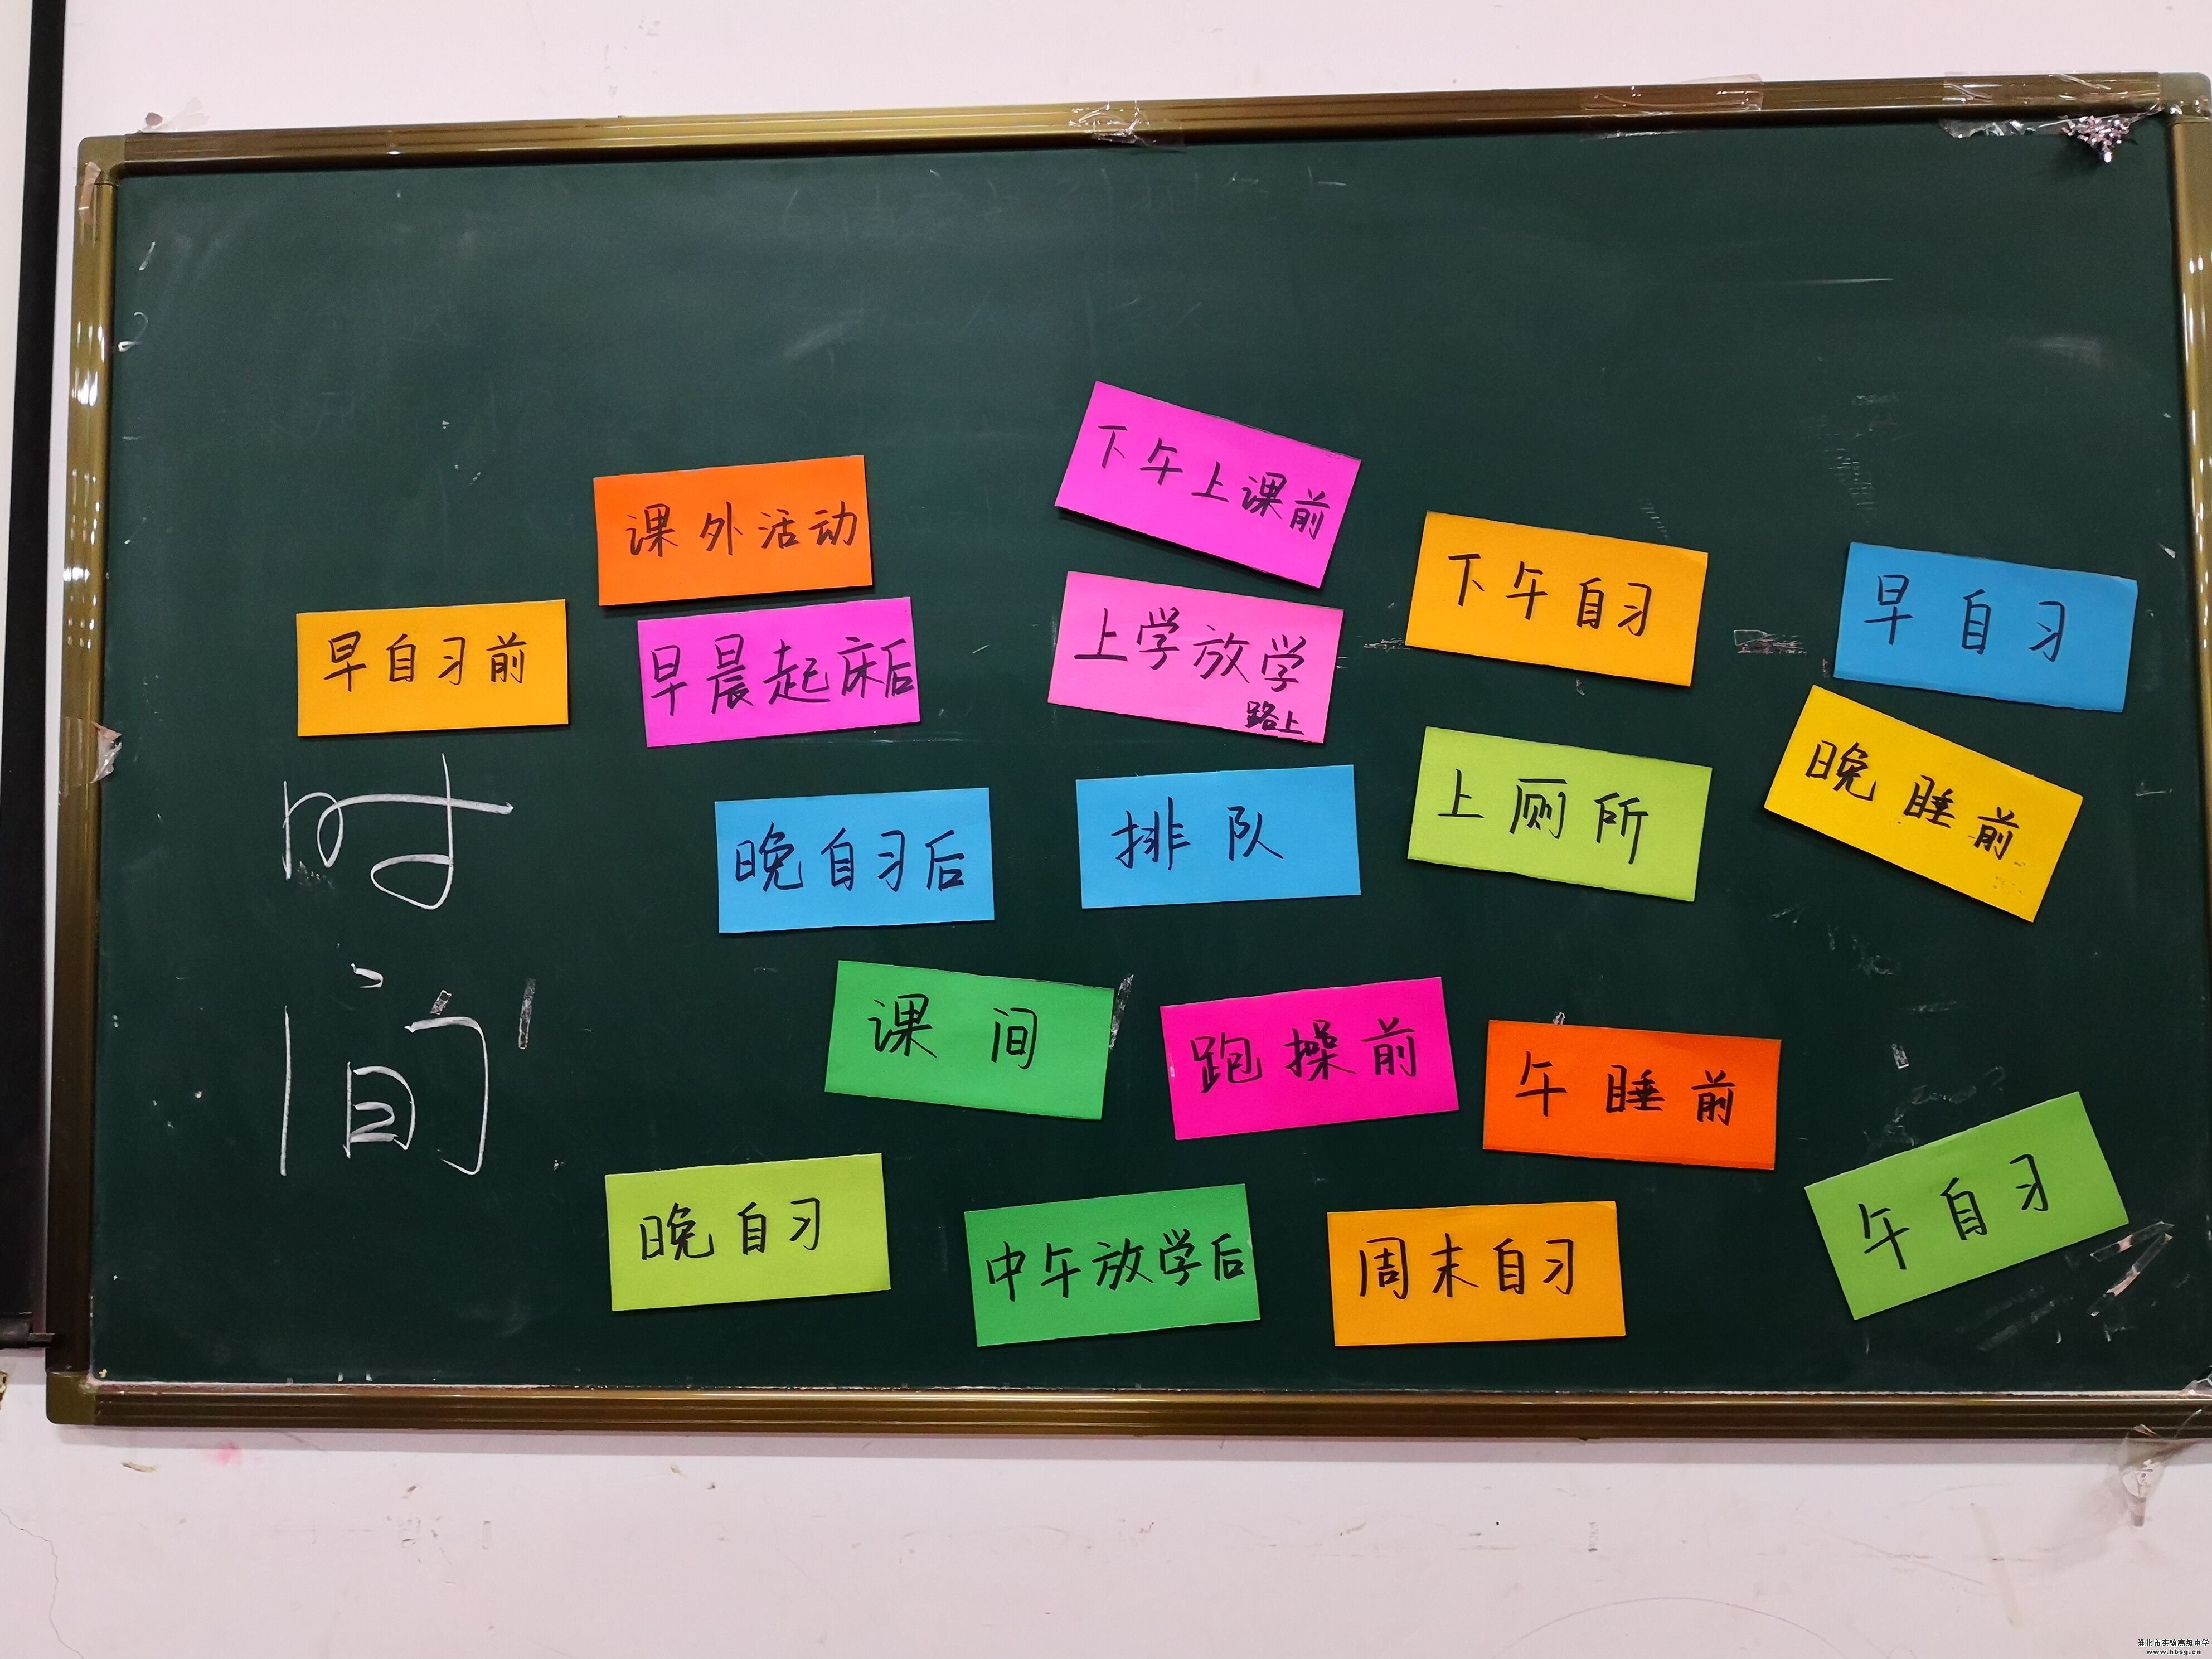 下午上课前
课外活动
下午自习
早自习
早自习前
早晨起床后
上学放学
路上
时
间
晚自习后
排队
上厕所
晚睡前
课间
跑操前
午睡前
晚自习
中午放学后
周末自习
午自习
淮北市实验高级中学
www.hbsg.cn